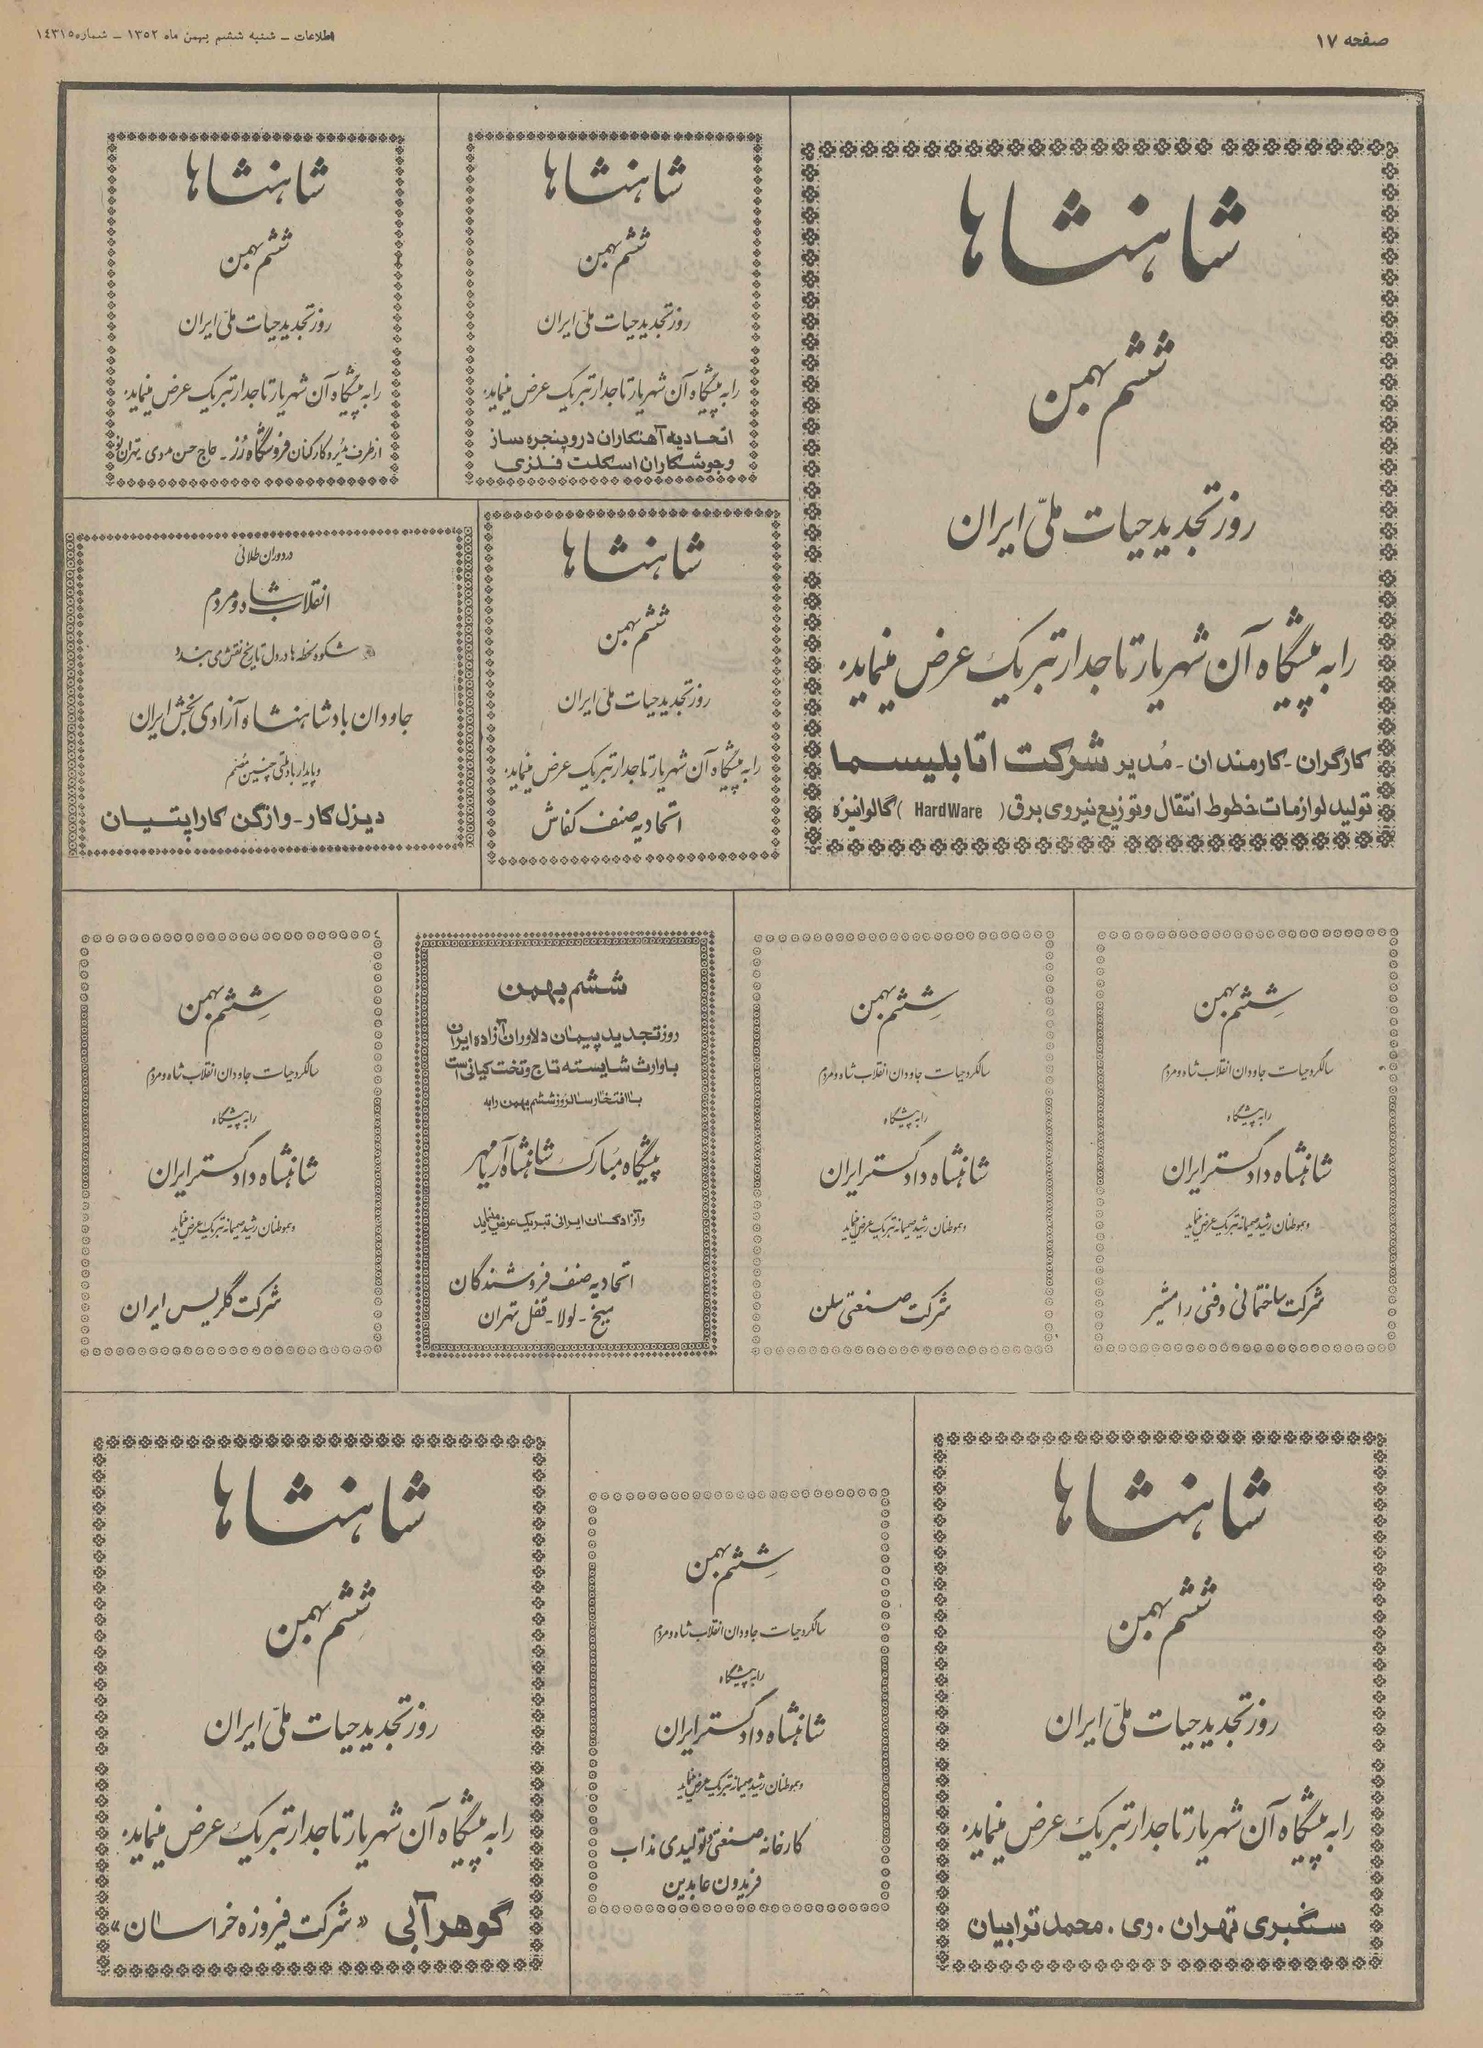 صفحه ۱۷
اطلاعات – شنبه ششم بهمن ماه ۱۳۵۲ – شماره ۱٤۳۱۵
شاهنشاها
ششم بهمن
روز تجدید حیات ملّی ایران
را به پیشگاه آن شهریار تاجدار تبریک عرض مینماید.
کارگران - کارمندان - مُدیر شرکت اتابلیسما
تولید لوازمات خطوط انتقال و توزیع نیروی برق ( HardWare ) گالوانیزه
شاهنشاها
ششم بهمن
روز تجدید حیات ملّی ایران
را به پیشگاه آن شهریار تاجدار تبریک عرض مینماید.
اتحادیه آهنکاران در و پنجره ساز
و جوشکاران اسکلت فلزی
شاهنشاها
ششم بهمن
روز تجدید حیات ملّی ایران
را به پیشگاه آن شهریار تاجدار تبریک عرض مینماید.
از طرف مدیر و کارکنان فروشگاه رُز - حاج حسن
شاهنشاها
ششم بهمن
روز تجدید حیات ملّی ایران
را به پیشگاه آن شهریار تاجدار تبریک عرض مینماید.
اتحادیه صنف کفاش
در دوران طلائی
انقلاب شاه و مردم
شکوه لحظه ها در دل تاریخ نقش می بندد
جاودان باد شاهنشاه آزادی بخش ایران
و پایدار باد ملتی چنین مصمم
دیزل کار - وازگن کاراپتیان
ششم بهمن
سالگرد حیات جاودان انقلاب شاه و مردم
را به پیشگاه
شاهنشاه دادگستر ایران
و هموطنان رشید صمیمانه تبریک عرض مینماید
شرکت ساختمانی و فنی رامشیر
ششم بهمن
سالگرد حیات جاودان انقلاب شاه و مردم
را به پیشگاه
شاهنشاه دادگستر ایران
و هموطنان رشید صمیمانه تبریک عرض مینماید
شرکت صنعتی سلن
ششم بهمن
روز تجدید پیمان دلاوران آزاده ایران
با وارث شایسته تاج و تخت کیانی است
با افتخار سالروز ششم بهمن را به
پیشگاه مبارک شاهنشاه آریامهر
و آزادگان ایرانی تبریک عرض مینماید
اتحادیه صنف فروشندگان
میخ - لولا - قفل تهران
ششم بهمن
سالگرد حیات جاودان انقلاب شاه و مردم
را به پیشگاه
شاهنشاه دادگستر ایران
و هموطنان رشید صمیمانه تبریک عرض مینماید
شرکت گلریس ایران
شاهنشاها
ششم بهمن
روز تجدید حیات ملّی ایران
را به پیشگاه آن شهریار تاجدار تبریک عرض مینماید.
سنگبری تهران . ری . محمد ترابیان
ششم بهمن
سالگرد حیات جاودان انقلاب شاه و مردم
را به پیشگاه
شاهنشاه دادگستر ایران
و هموطنان رشید صمیمانه تبریک عرض مینماید
کارخانه صنعتی و تولیدی مذاب
فریدون عابدین
شاهنشاها
ششم بهمن
روز تجدید حیات ملّی ایران
را به پیشگاه آن شهریار تاجدار تبریک عرض مینماید.
گوهر آبی «شرکت فیروزه خراسان»